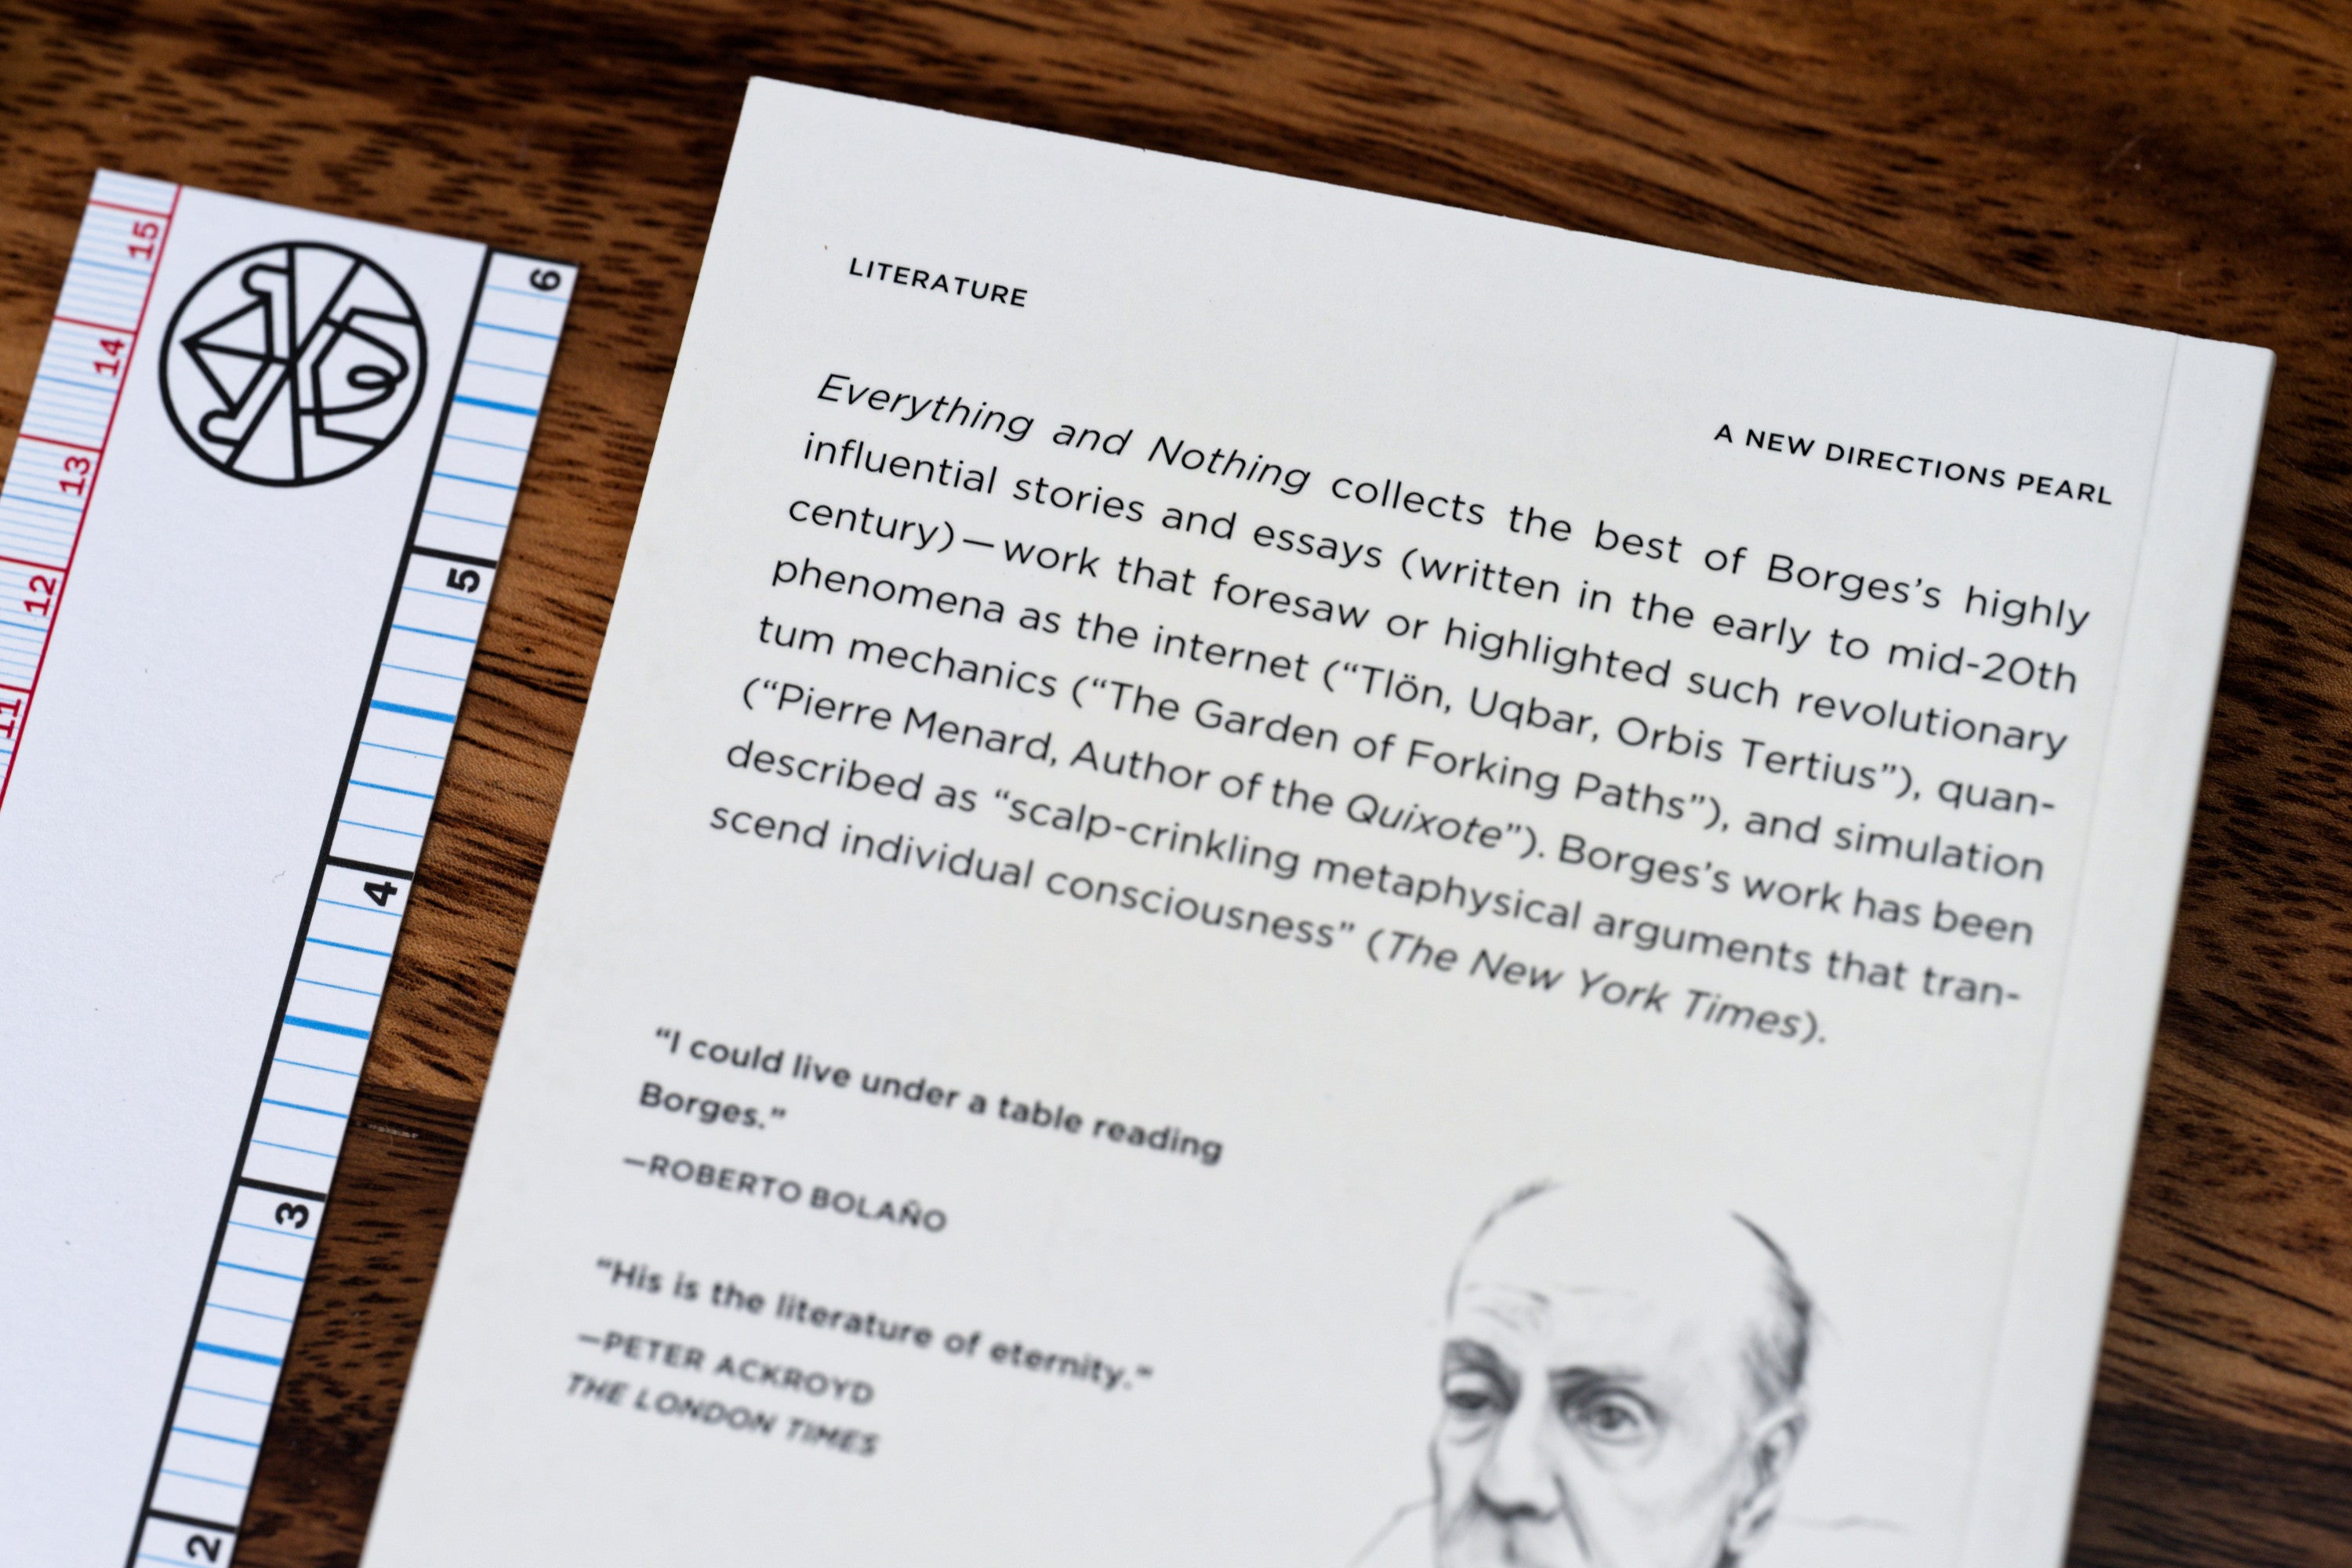 15
14
13
12
11
6
5
4
3
2
LITERATURE
A NEW DIRECTIONS PEARL
Everything and Nothing collects the best of Borges’s highly
influential stories and essays (written in the early to mid-20th
century)—work that foresaw or highlighted such revolutionary
phenomena as the internet (“Tlön, Uqbar, Orbis Tertius”), quan-
tum mechanics (“The Garden of Forking Paths”), and simulation
(“Pierre Menard, Author of the Quixote”). Borges’s work has been
described as “scalp-crinkling metaphysical arguments that tran-
scend individual consciousness” (The New York Times).
“I could live under a table reading
Borges.”
—ROBERTO BOLAÑO
“His is the literature of eternity.”
—PETER ACKROYD
THE LONDON TIMES